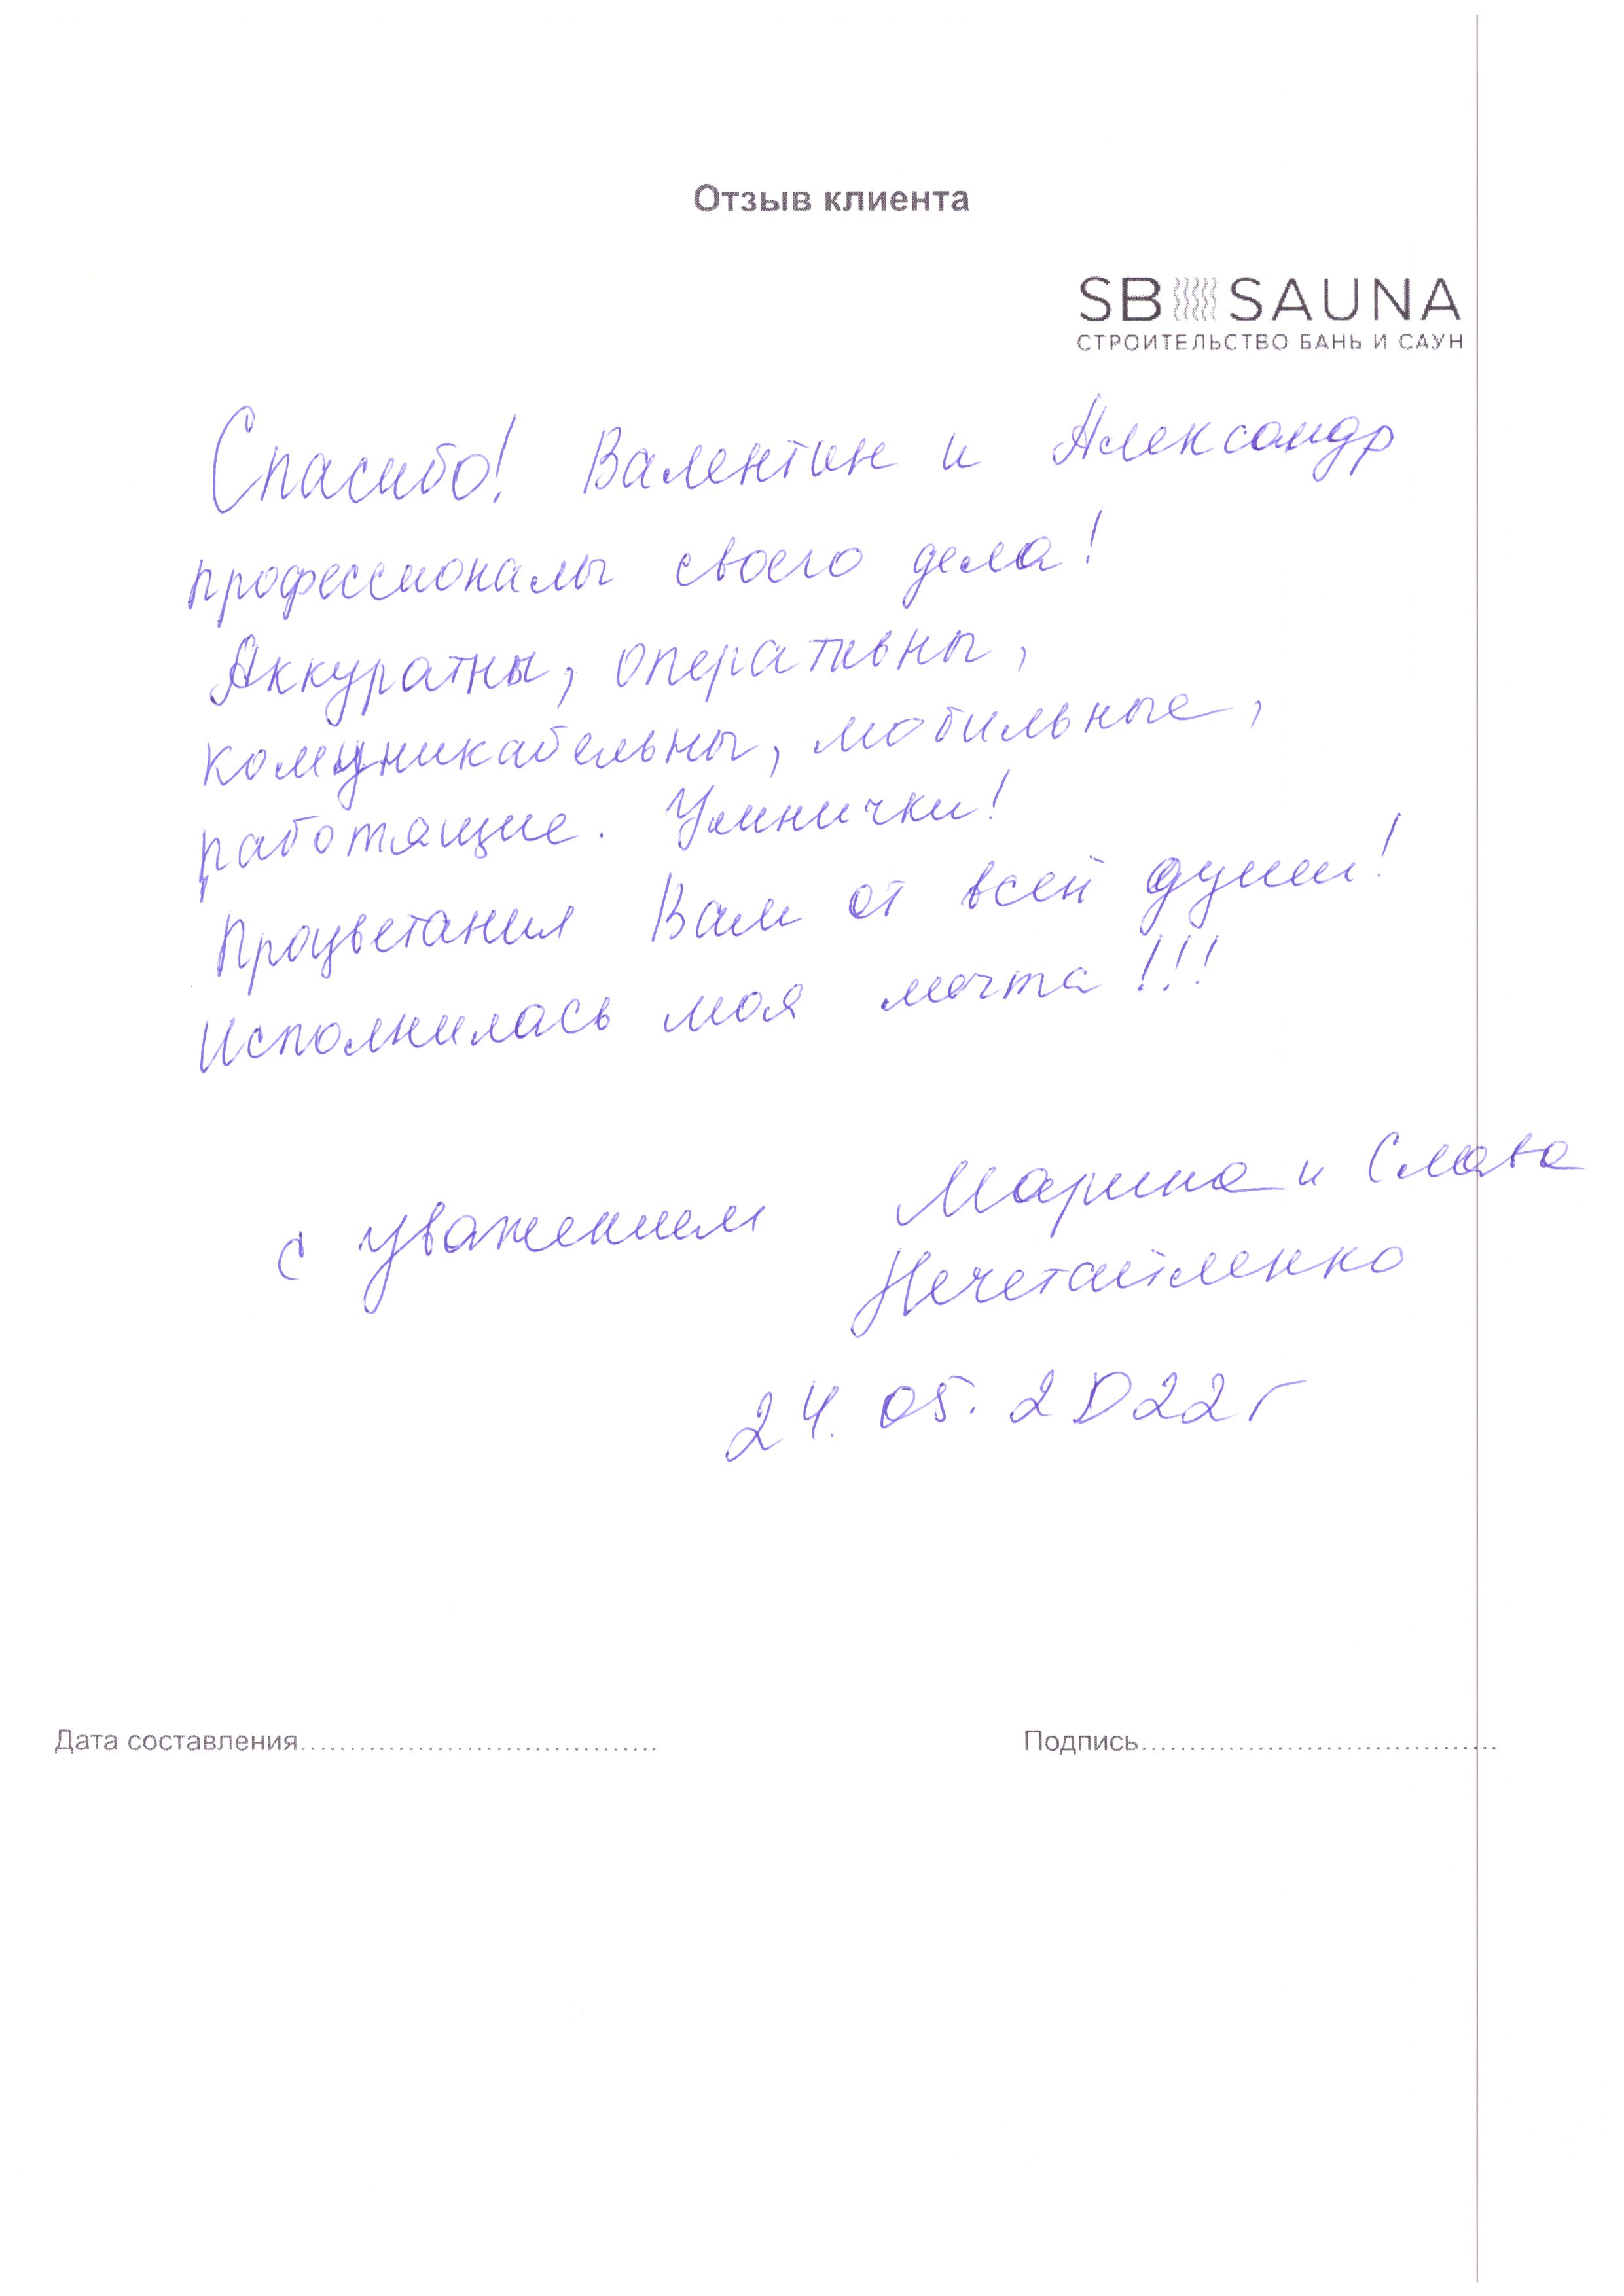 Отзыв клиента
SB SAUNA
СТРОИТЕЛЬСТВО БАНЬ И САУН
Спасибо! Валентин и Александр
профессионалы своего дела!
Аккуратны, оперативны,
комуникабельны, мобильные,
работящие. Умнички!
Процветания Вам от всей души!
Исполнилась моя мечта!!!
с уважением Марина и Слава
Нечетайленко
24.05.2022г
Дата составления.................................... Подпись....................................